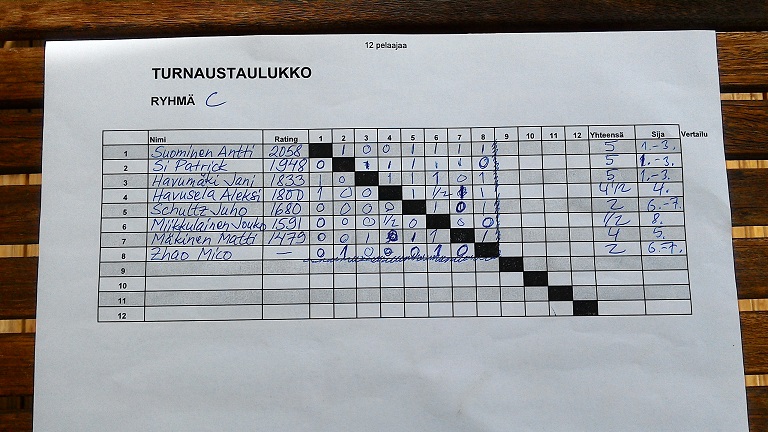 12 pelaajaa
TURNAUSTAULUKKO
RYHMÄ C
Nimi Rating 1 2 3 4 5 6 7 8 9 10 11 12 Yhteensä Sija Vertailu
1 Suominen Antti 2058 1 0 0 1 1 1 1 5 1.-3.
2 Si Patrick 1948 0 1 1 1 1 1 0 5 1.-3.
3 Havumäki Jani 1833 1 0 1 1 1 0 1 5 1.-3.
4 Havusela Aleksi 1800 1 0 0 1 1/2 1 1 4 1/2 4.
5 Schultz Juho 1680 0 0 0 0 1 0 1 2 6.-7.
6 Miikkulainen Jouko 1591 0 0 0 1/2 0 0 0 1/2 8.
7 Mäkinen Matti 1479 0 0 1 0 1 1 1 4 5.
8 Zhao Mico — 0 1 0 0 0 1 0 2 6.-7.
9
10
11
12